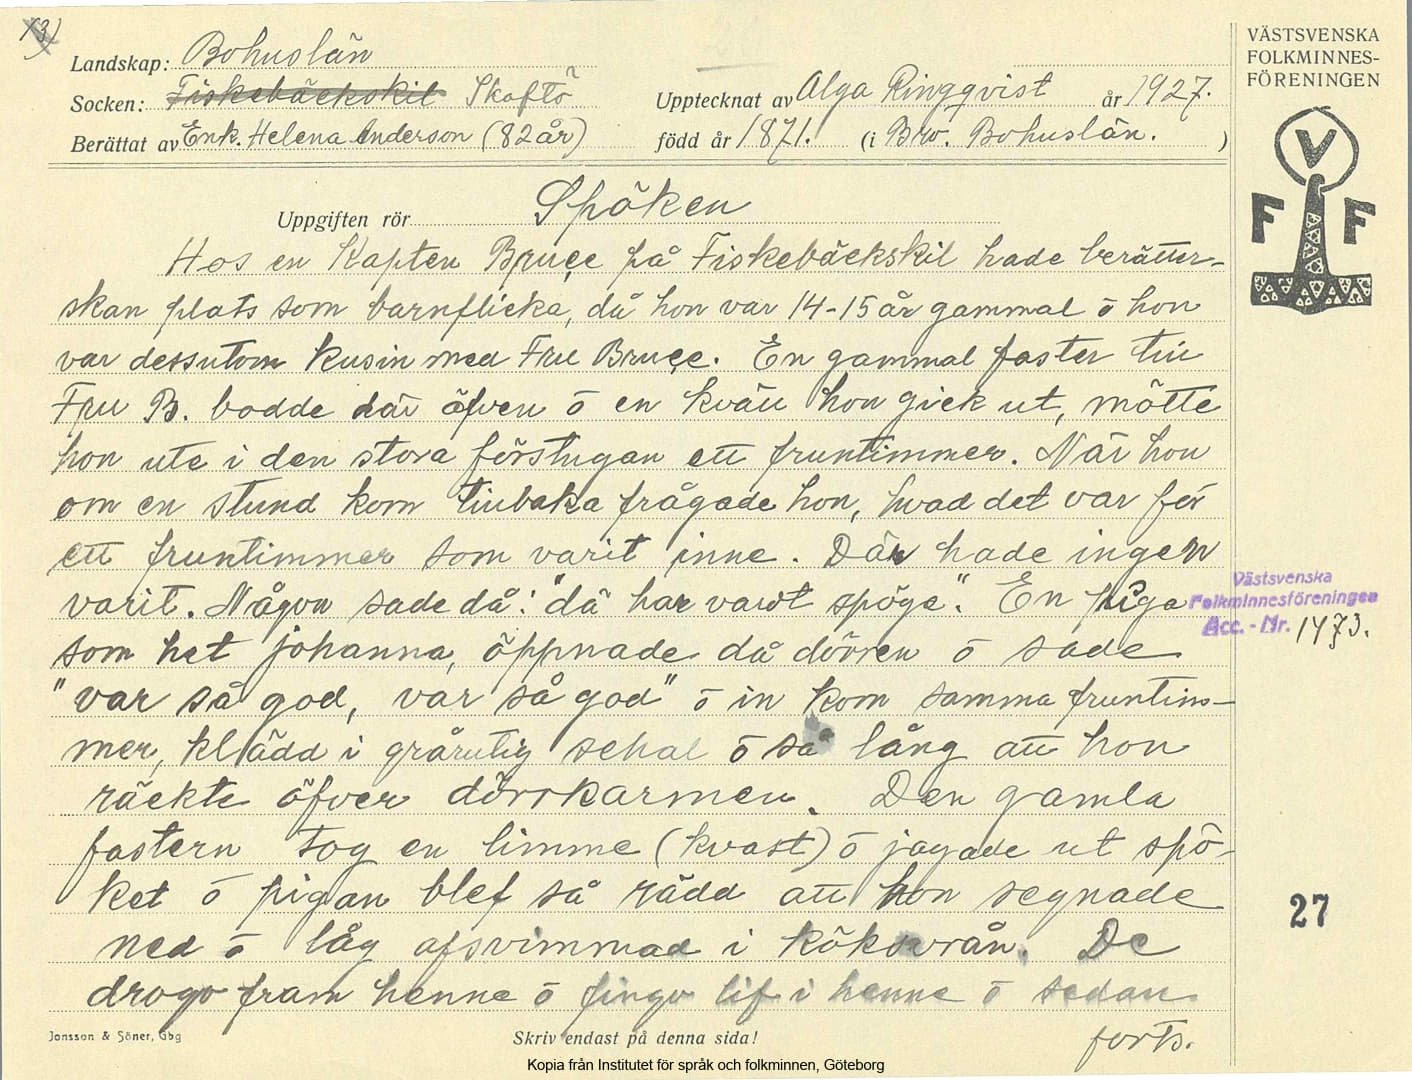 13)
Landskap: Bohuslän
Socken: Fiskebäckskil Skaftö
Berättat av Enk. Helena Anderson (82 år)
Upptecknat av Olga Ringqvist år 1927.
född år 1871. (i Bro. Bohuslän. )
VÄSTSVENSKA
FOLKMINNES-
FÖRENINGEN
V
F F
Uppgiften rör Spöken
Hos en Kapten Bruce på Fiskebäckskil hade berätter-
skan plats som barnflicka, då hon var 14-15 år gammal ō hon
var dessutom kusin med Fru Bruce. En gammal faster till
Fru B. bodde där äfven ō en kväll hon gick ut, mötte
hon ute i den stora förstugan ett fruntimmer. När hon
om en stund kom tillbaka frågade hon, hvad det var för
ett fruntimmer som varit inne. Där hade ingen
varit. Någon sade då: "dä har vart spöge". En piga
som het Johanna, öppnade då dörren ō sade
"var så god, var så god" ō in kom samma fruntim-
mer, klädd i grårutig schal ō så lång att hon
räckte öfver dörrkarmen. Den gamla
fastern tog en limme (kvast) ō jagade ut spö-
ket ō pigan blef så rädd att hon segnade
ned ō låg afsvimmad i köksvrån. De
drogo fram henne ō fingo lif i henne ō sedan
forts.
Västsvenska
Folkminnesföreningen
Acc. - Nr. 1473.
27
Jonsson & Söner, Gbg
Skriv endast på denna sida!
Kopia från Institutet för språk och folkminnen, Göteborg